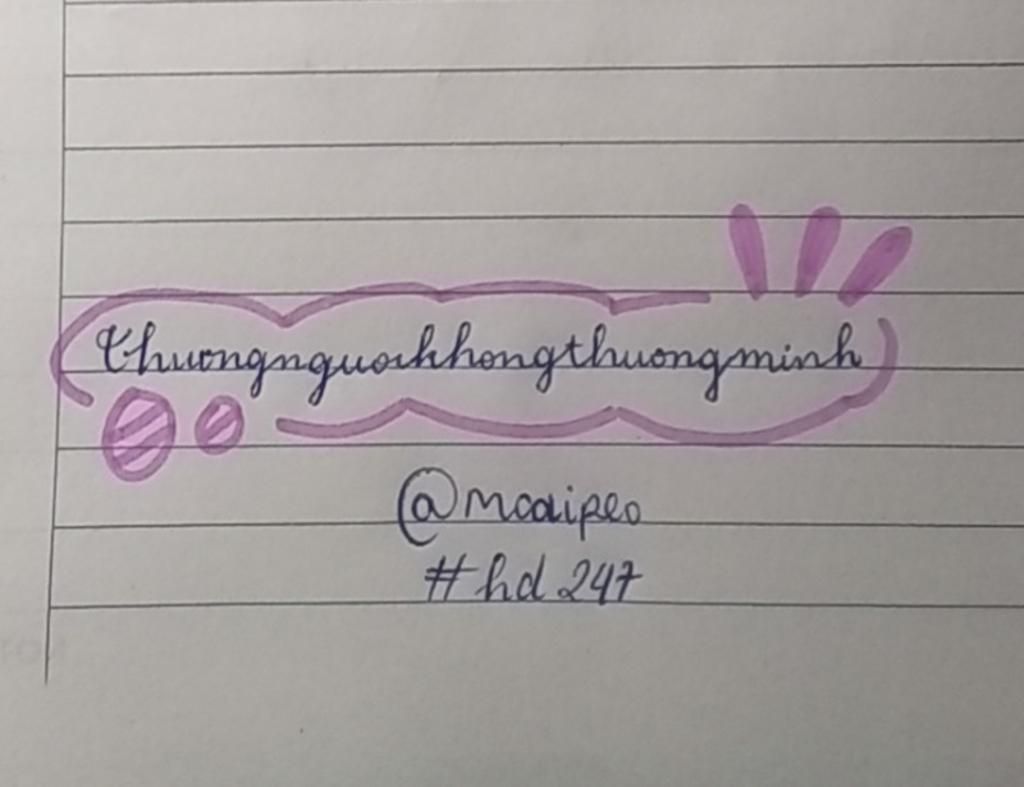 thuongnguoikhongthuongminh
@mcaipeo
#hd247